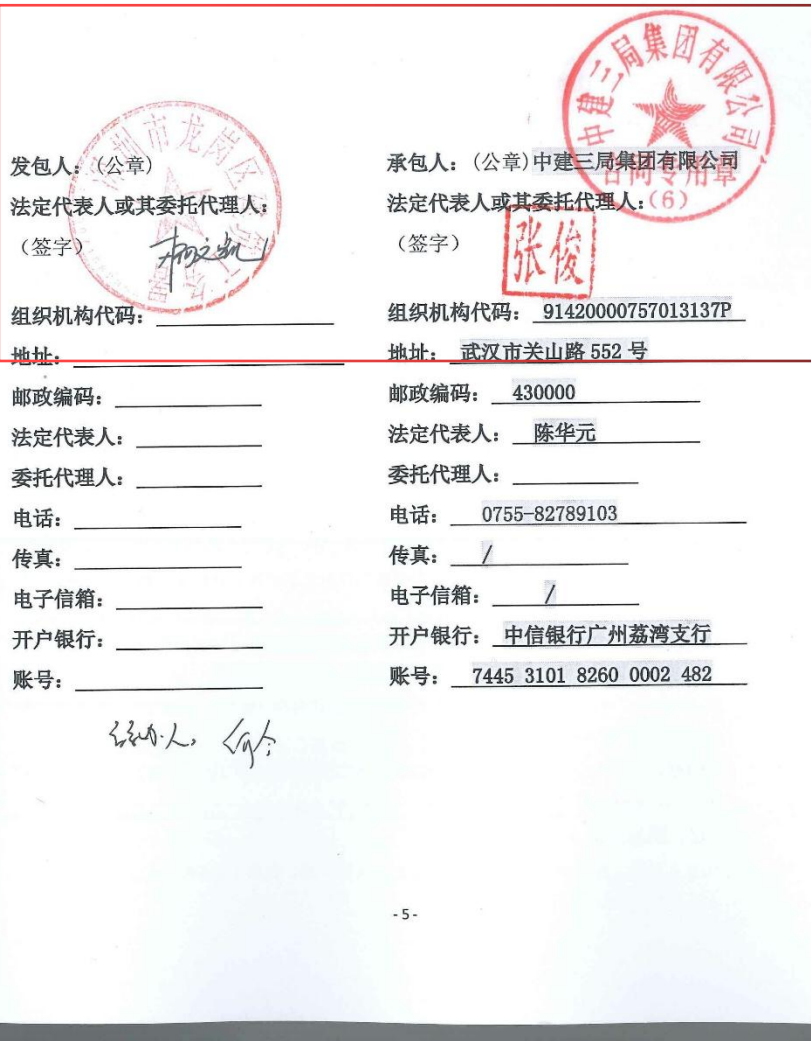 中建三局集团有限公司
合同专用章
(6)
发包人：(公章)
法定代表人或其委托代理人：
（签字）
组织机构代码：
地址：
邮政编码：
法定代表人：
委托代理人：
电话：
传真：
电子信箱：
开户银行：
账号：
经办人：
承包人：(公章)中建三局集团有限公司
法定代表人或其委托代理人：
（签字）
张俊
组织机构代码：91420000757013137P
地址：武汉市关山路 552 号
邮政编码：430000
法定代表人：陈华元
委托代理人：
电话：0755-82789103
传真：/
电子信箱：/
开户银行：中信银行广州荔湾支行
账号：7445 3101 8260 0002 482
- 5 -